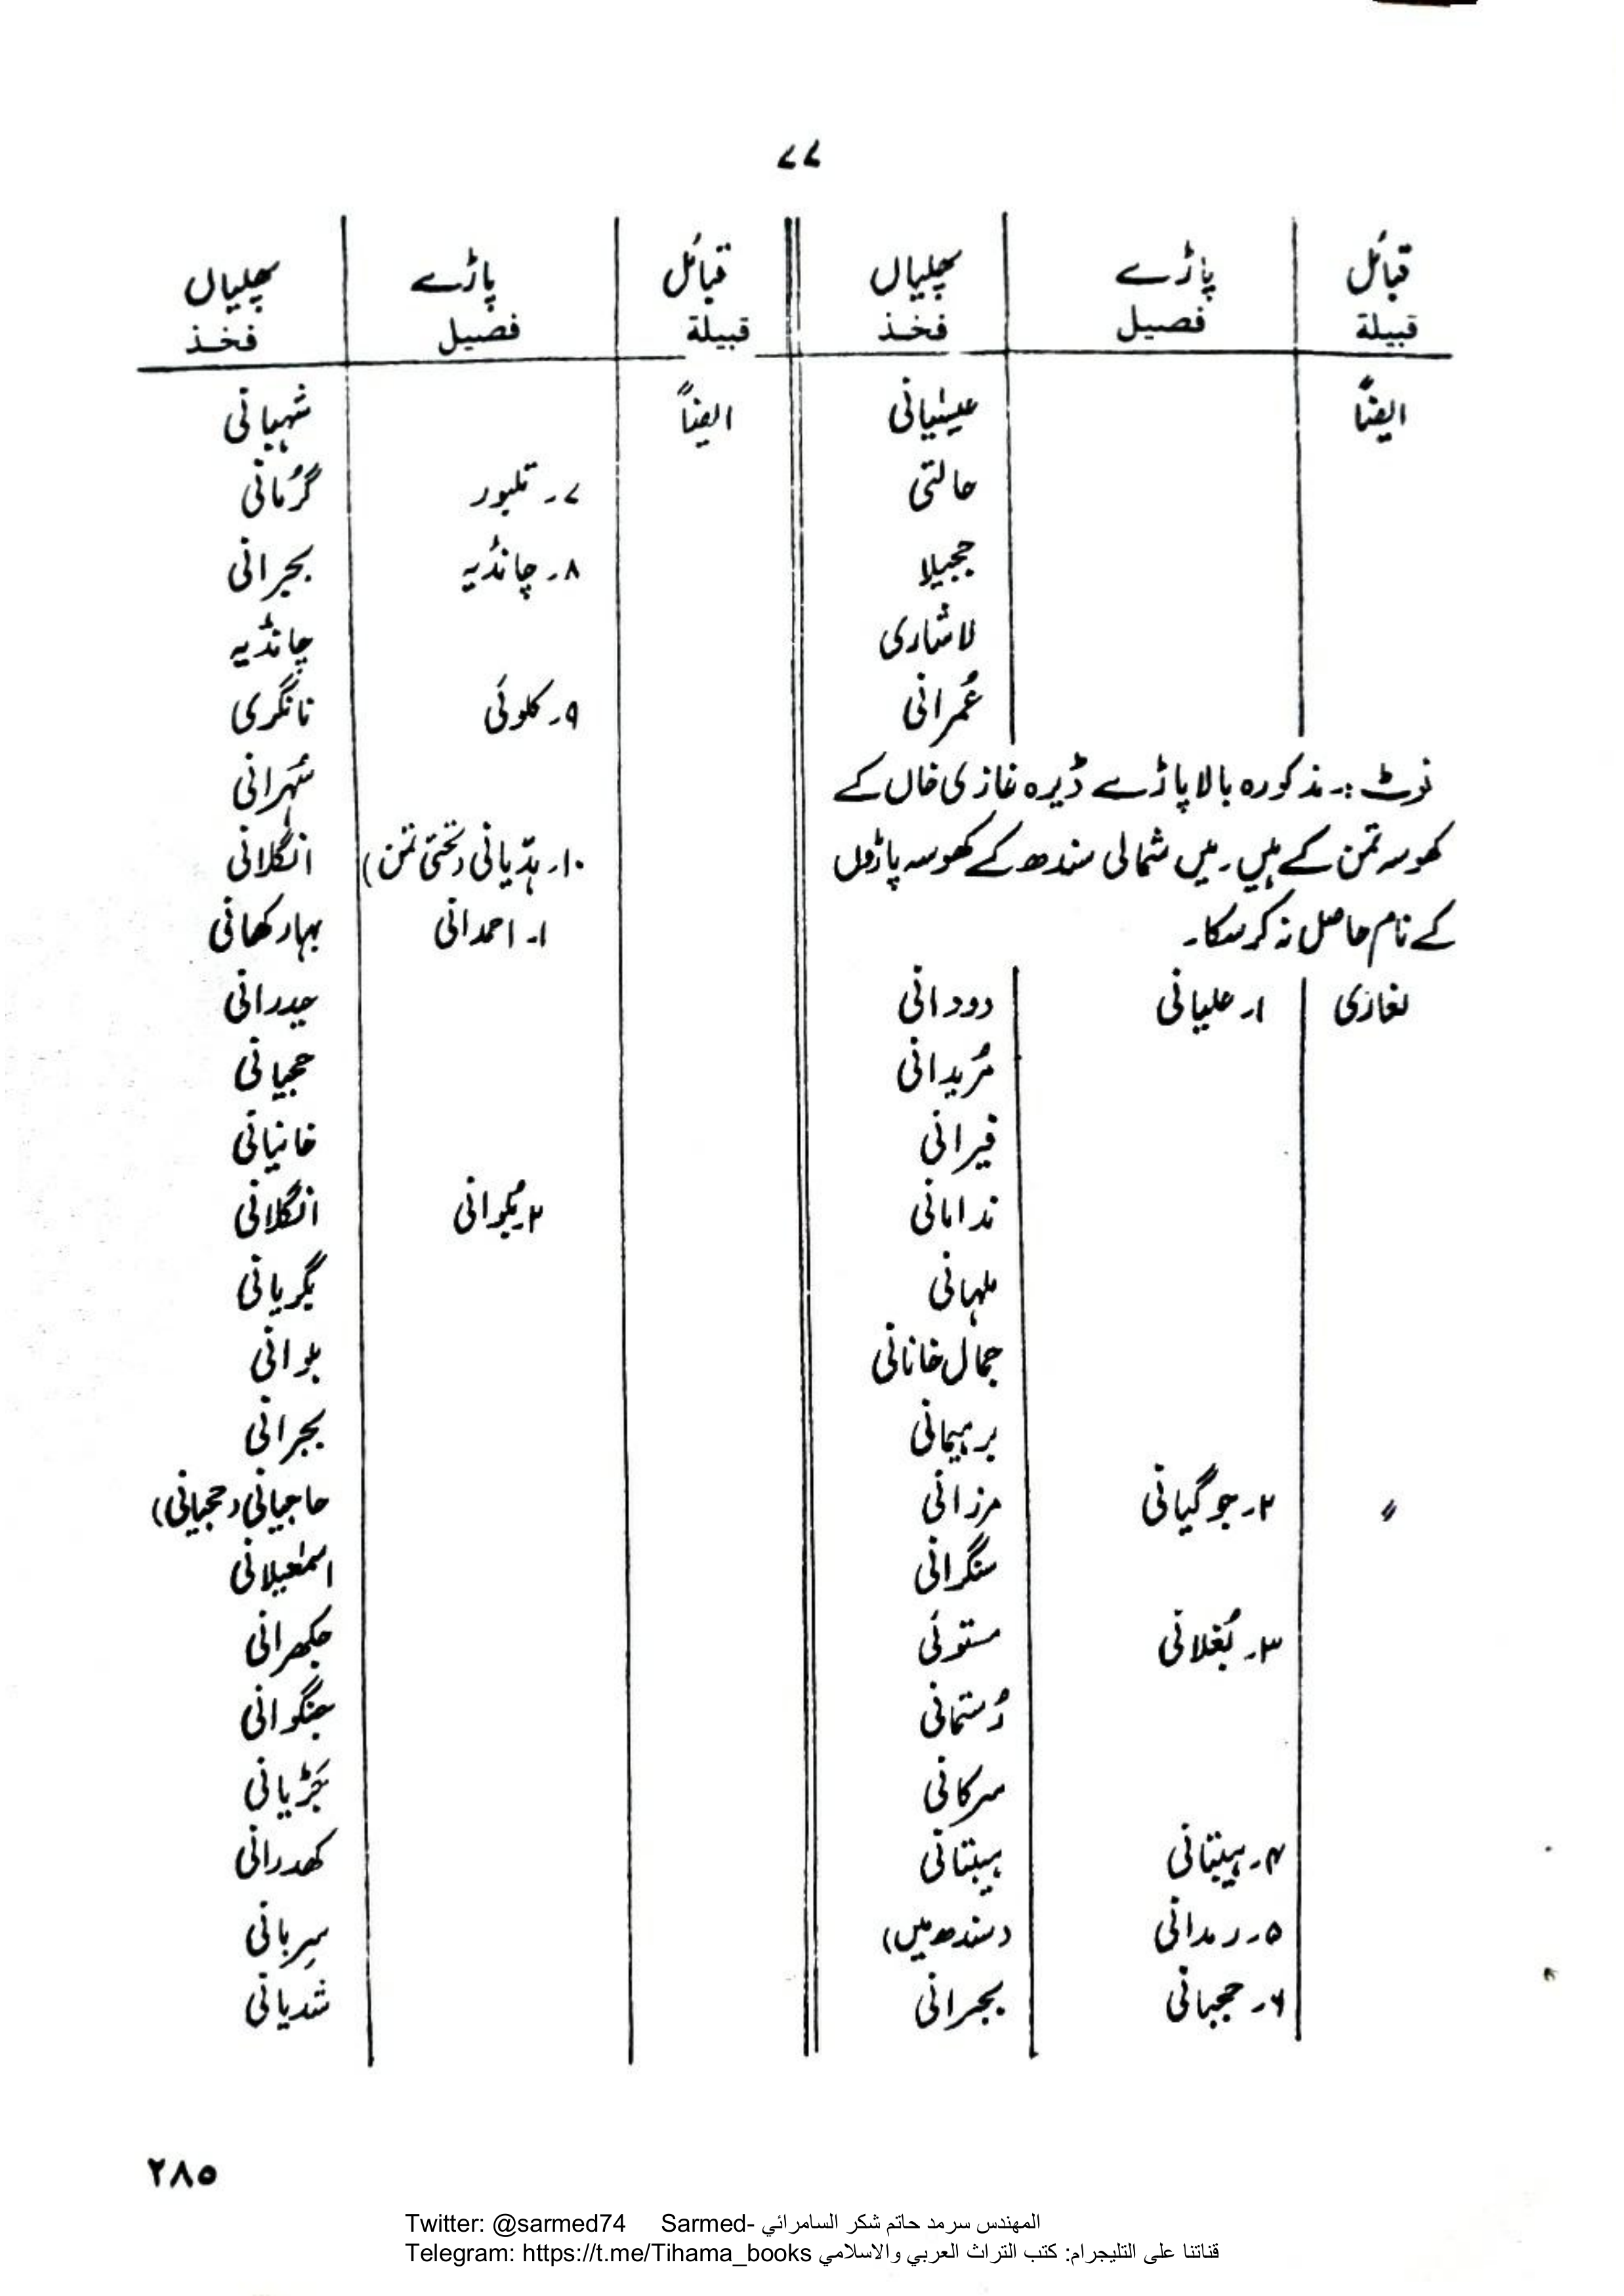 ۷۷
قبائل پاڑے پھلیاں
قبيلة فصيل فخذ
ایضاً عیسیانی
حالتی
ججیلا
لاشاری
عُمرانی
نوٹ :۔ مذکورہ بالا پاڑے ڈیرہ غازی خاں کے
کھوسہ تمن کے ہیں۔ میں شمالی سندھ کے کھوسہ پاڑوں
کے نام حاصل نہ کرسکا۔
لغاری ۱۔ علیانی دودانی
مُریدانی
فیرانی
ندامانی
ملہانی
جمال خانانی
برہیمانی
〃 ۲۔ جوگیانی مرزانی
سنگرانی
۳۔ بُغلانی مستوئی
رُستمانی
سرکانی
۴۔ ہیبتانی ہیبتانی
۵۔ رمدانی (سندھ میں)
۶۔ حجبانی بجرانی
قبائل پاڑے پھلیاں
قبيلة فصيل فخذ
ایضاً شہیانی
۷۔ تلپور گُرمانی
۸۔ چانڈیہ بجرانی
چانڈیہ
۹۔ کلوئی نانگری
شہرانی
۱۰۔ ہدّیانی (تختی تمن) انگلانی
۱۔ احمدانی بہارکھانی
حیدرانی
حجیانی
خانیانی
۲۔ بگوانی انگلانی
بگریانی
بلوانی
بجرانی
حاجیانی (حجیانی)
اسمٰعیلانی
جکھرانی
جنگوانی
بجڑیانی
کھدرانی
سربانی
شدیانی
٢٨٥
Twitter: @sarmed74 Sarmed- المهندس سرمد حاتم شكر السامرائي
Telegram: https://t.me/Tihama_books قناتنا على التليجرام: كتب التراث العربي والاسلامي